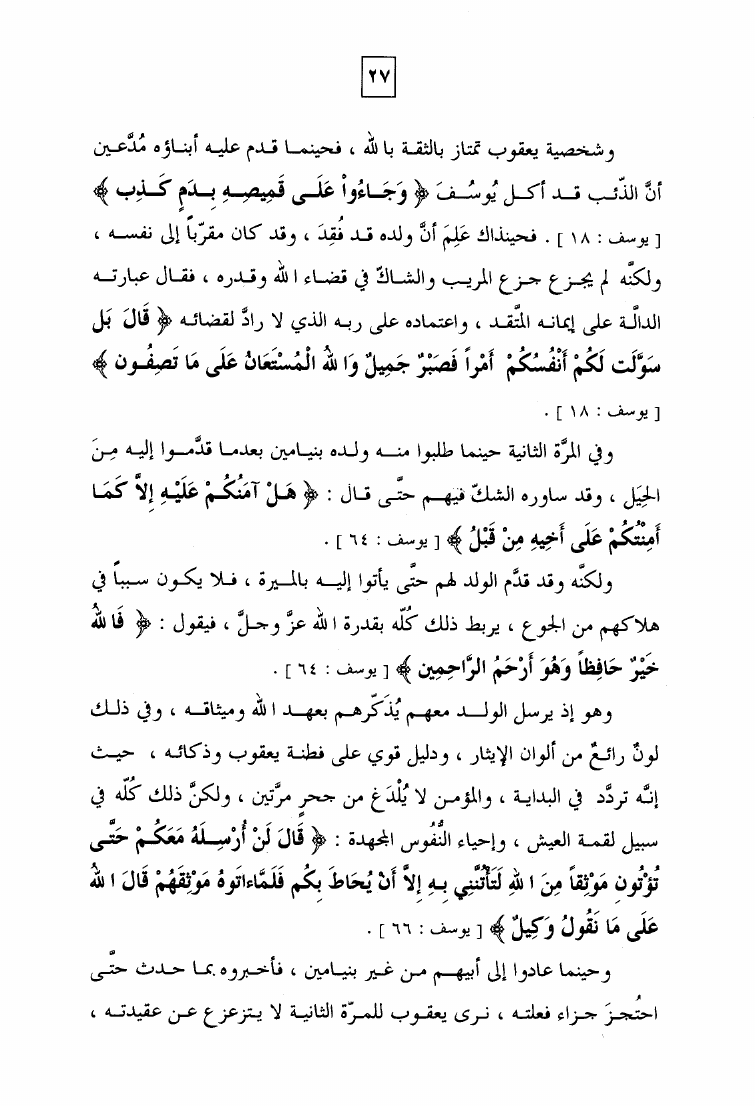 ٢٧
وشخصية يعقوب تمتاز بالثقة بالله ، فحينما قدم عليه أبناؤه مُدَّعين
أنَّ الذّئب قد أكل يُوسُفَ ﴿ وَجَاءُواْ عَلَى قَمِيصِهِ بِدَمٍ كَذِب ﴾
[ يوسف : ١٨ ] . فحينذاك عَلِمَ أنَّ ولده قد فُقِدَ ، وقد كان مقرّباً إلى نفسه ،
ولكنَّه لم يجزع جزع المريب والشاكّ في قضاء الله وقدره ، فقال عبارته
الدالّة على إيمانه المتَّقد ، واعتماده على ربه الذي لا رادَّ لقضائه ﴿ قَالَ بَل
سَوَّلَت لَكُمْ أَنْفُسُكُمْ أَمْراً فَصَبْرٌ جَمِيلٌ وَاللهُ الْمُسْتَعَانُ عَلَى مَا تَصِفُون ﴾
[ يوسف : ١٨ ] .
وفي المرَّة الثانية حينما طلبوا منه ولده بنيامين بعدما قدَّموا إليه مِنَ
الحِيَل ، وقد ساوره الشكّ فيهم حتَّى قال : ﴿ هَلْ آمَنُكُمْ عَلَيْهِ إلاَّ كَمَا
أَمِنْتُكُمْ عَلَى أَخِيهِ مِنْ قَبْلُ ﴾ [ يوسف : ٦٤ ] .
ولكنَّه وقد قدَّم الولد لهم حتَّى يأتوا إليه بالميرة ، فلا يكون سبباً في
هلاكهم من الجوع ، يربط ذلك كُلّه بقدرة الله عزَّ وجلَّ ، فيقول : ﴿ فَاللهُ
خَيْرٌ حَافِظاً وَهُوَ أَرْحَمُ الرَّاحِمِين ﴾ [ يوسف : ٦٤ ] .
وهو إذ يرسل الولد معهم يُذَكّرهم بعهد الله وميثاقه ، وفي ذلك
لونٌ رائعٌ من ألوان الإيثار ، ودليل قوي على فطنة يعقوب وذكائه ، حيث
إنَّه تردَّد في البداية ، والمؤمن لا يُلْدَغ من جحرٍ مرَّتين ، ولكنَّ ذلك كلّه في
سبيل لقمة العيش ، وإحياء النُّفُوس المجهدة : ﴿ قَالَ لَنْ أُرْسِلَهُ مَعَكُمْ حَتَّى
تُؤْتُونِ مَوْثِقاً مِنَ اللهِ لَتَأْتُنَّنِي بِهِ إلاَّ أَنْ يُحَاطَ بِكُم فَلَمَّاءاتَوهُ مَوْثِقَهُمْ قَالَ اللهُ
عَلَى مَا نَقُولُ وَكِيلٌ ﴾ [ يوسف : ٦٦ ] .
وحينما عادوا إلى أبيهم من غير بنيامين ، فأخبروه بما حدث حتَّى
احتُجزَ جزاء فعلته ، نرى يعقوب للمرّة الثانية لا يتزعزع عن عقيدته ،